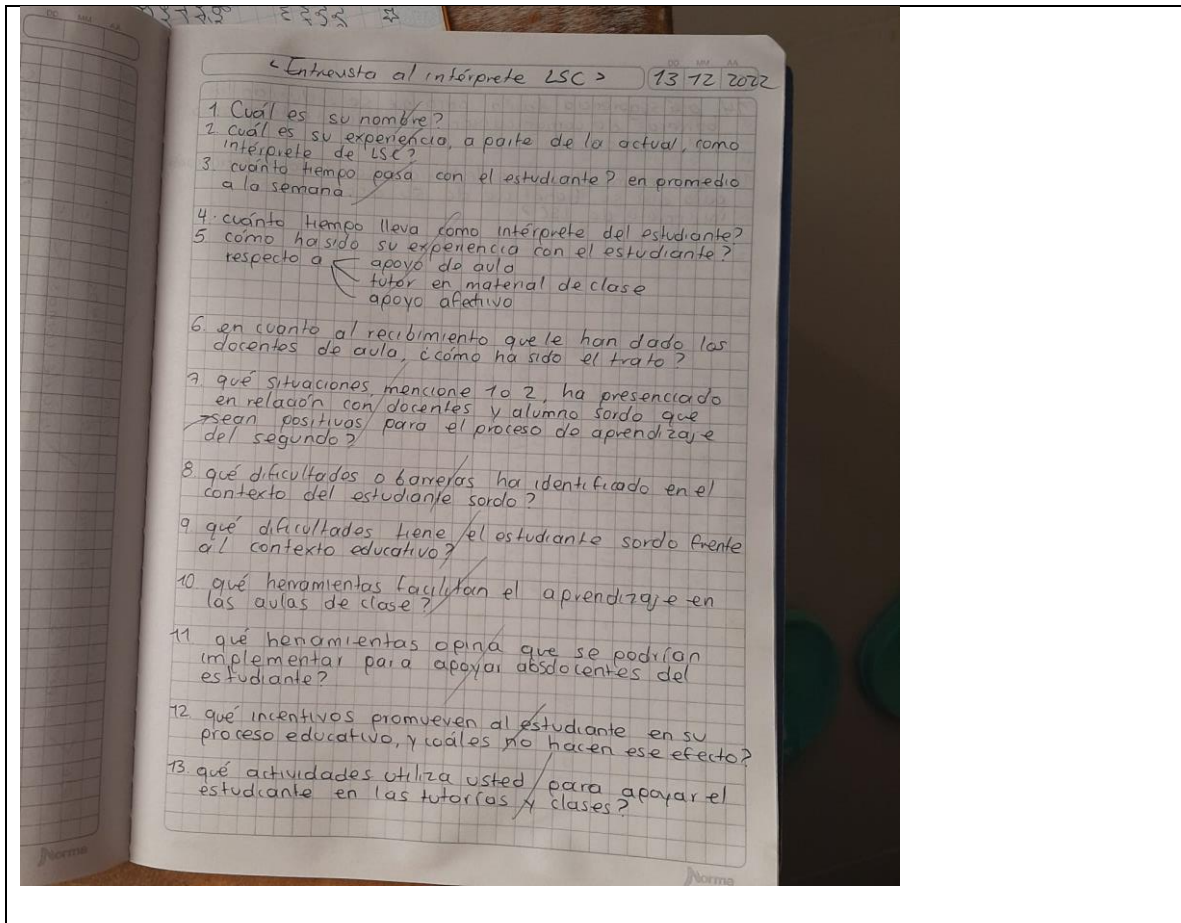 DD MM AA
<Entrevista al intérprete LSC> 13 12 2022
1 Cuál es su nombre?
2 cuál es su experiencia, a parte de la actual, como
intérprete de LSC?
3. cuánto tiempo pasa con el estudiante? en promedio
a la semana.
4. cuánto tiempo lleva como intérprete del estudiante?
5 cómo ha sido su experiencia con el estudiante?
respecto a apoyo de aula
tutor en material de clase
apoyo afectivo
6 en cuanto al recibimiento que le han dado los
docentes de aula, ¿cómo ha sido el trato?
7. qué situaciones, mencione 1 o 2, ha presenciado
en relación con docentes y alumno sordo que
sean positivas para el proceso de aprendizaje
del segundo?
8 qué dificultades o barreras ha identificado en el
contexto del estudiante sordo?
9 qué dificultades tiene el estudiante sordo frente
al contexto educativo?
10 qué herramientas facilitan el aprendizaje en
las aulas de clase?
11 qué herramientas opina que se podrían
implementar para apoyar docentes del
estudiante?
12 qué incentivos promueven al estudiante en su
proceso educativo, y cuáles no hacen ese efecto?
13. qué actividades utiliza usted para apoyar el
estudiante en las tutorías y clases?
Norma
Norma